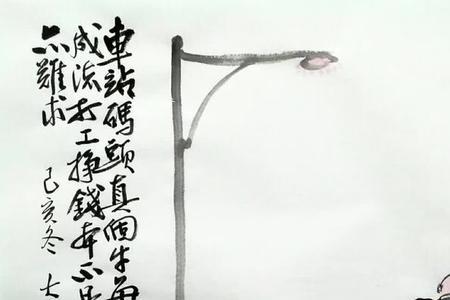 車站碼頭真個牛
成流打工掙錢本不
亦難求
己亥冬 大